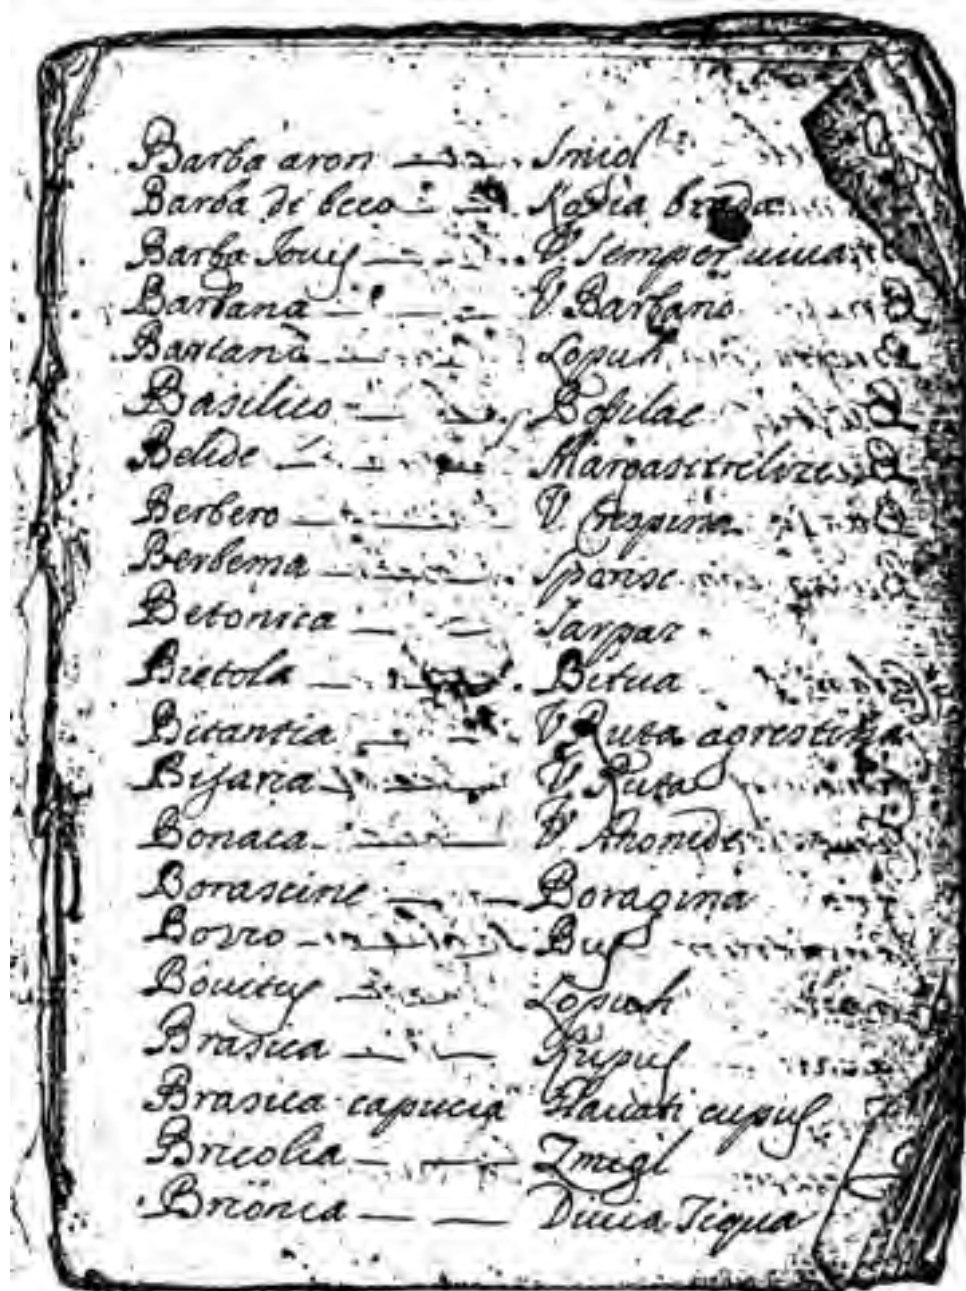 Barba aron — Smiol
Barba di beco — Kosia brada
Barba Jouis — V. Semper uiua
Barbana — V. Barbano
Bartana — Lopuh
Basilico — Bosilac
Belide — Margaritelize
Berbero — V. Crespina
Berbema — Sparise
Betonica — Sarpaz
Bietola — Bitua
Bitantia — V. Ruta agrestina
Bijaria — V. Ruta
Bonaca — V. Anonide
Borascine — Boragina
Borro — Bus
Bouitus — Lopuh
Brasica — Kupus
Brasica capucia Glauati cupus
Bricolia — Zmigl
Brionia — Diuia Tiqua